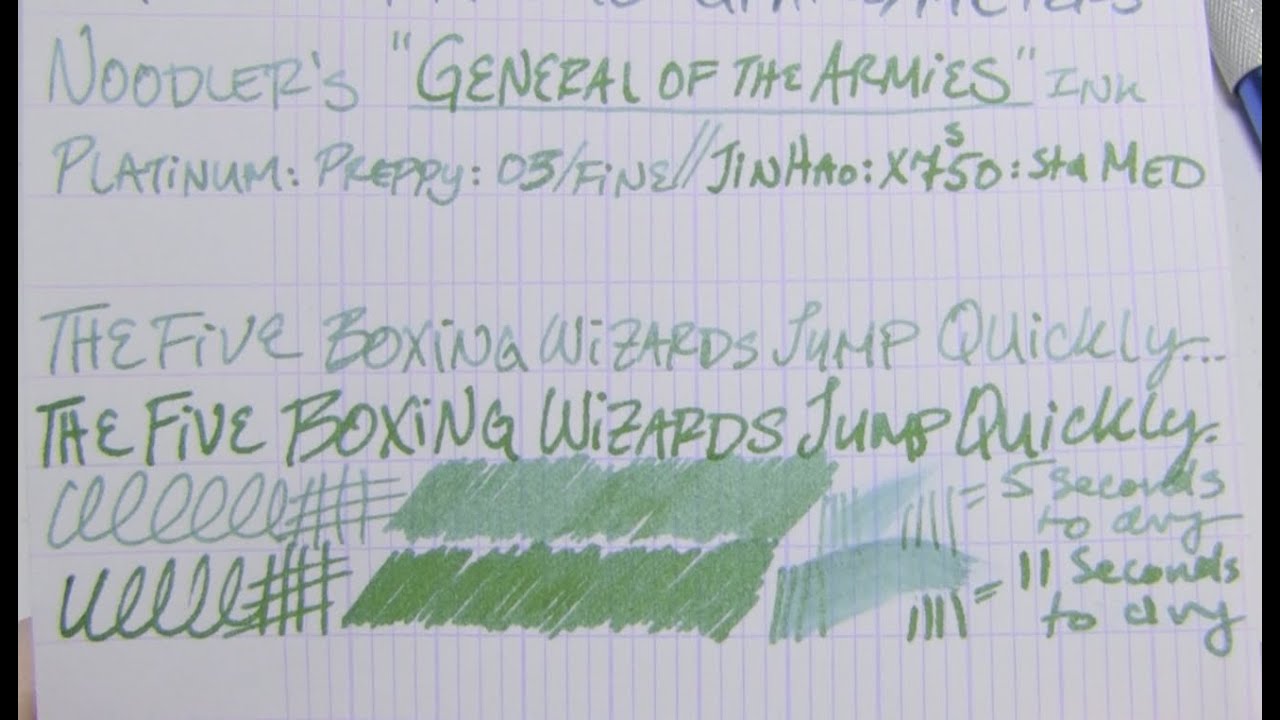 NOODLER'S "GENERAL OF THE ARMIES" INK
PLATINUM: PREPPY: 03/FINE//JINHAO: X750: Std MED
THE FIVE BOXING WIZARDS JUMP QUICKLY...
THE FIVE BOXING WIZARDS JUMP QUICKLY.
= 5 Seconds
to dry
= 11 Seconds
to dry